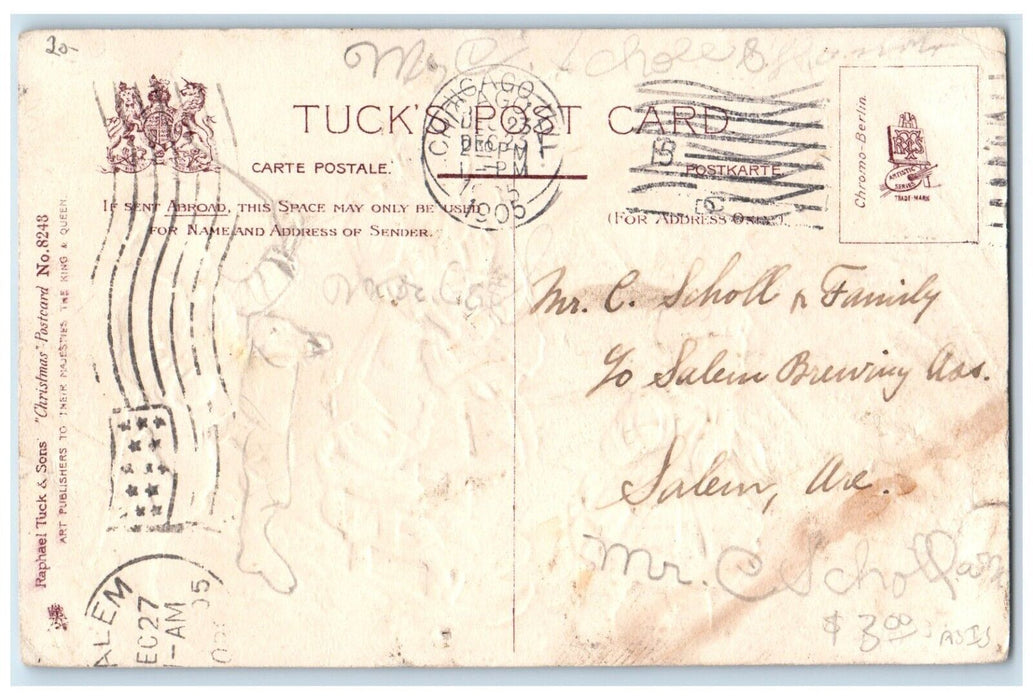 20-
Mr. C. Scholl & Family
TUCK'S POST CARD
CHICAGO
DEC 23
PM
1905
CARTE POSTALE.
POSTKARTE
Chromo-Berlin.
ARTISTIC SERIES
TRADE-MARK
IF SENT ABROAD, THIS SPACE MAY ONLY BE USED
FOR NAME AND ADDRESS OF SENDER.
(FOR ADDRESS ONLY.)
Mr. C. Scholl & Family
c/o Salem Brewing Ass.
Salem, Ore.
Mr. C Scholl an
$3.00 ASIS
Raphael Tuck & Sons' "Christmas" Postcard No. 8248
ART PUBLISHERS TO THEIR MAJESTIES THE KING & QUEEN.
ALEM
EC 27
-AM
05